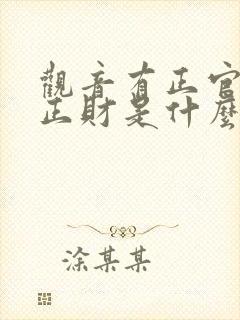 觀音有正官
正財是什麼
涂某某